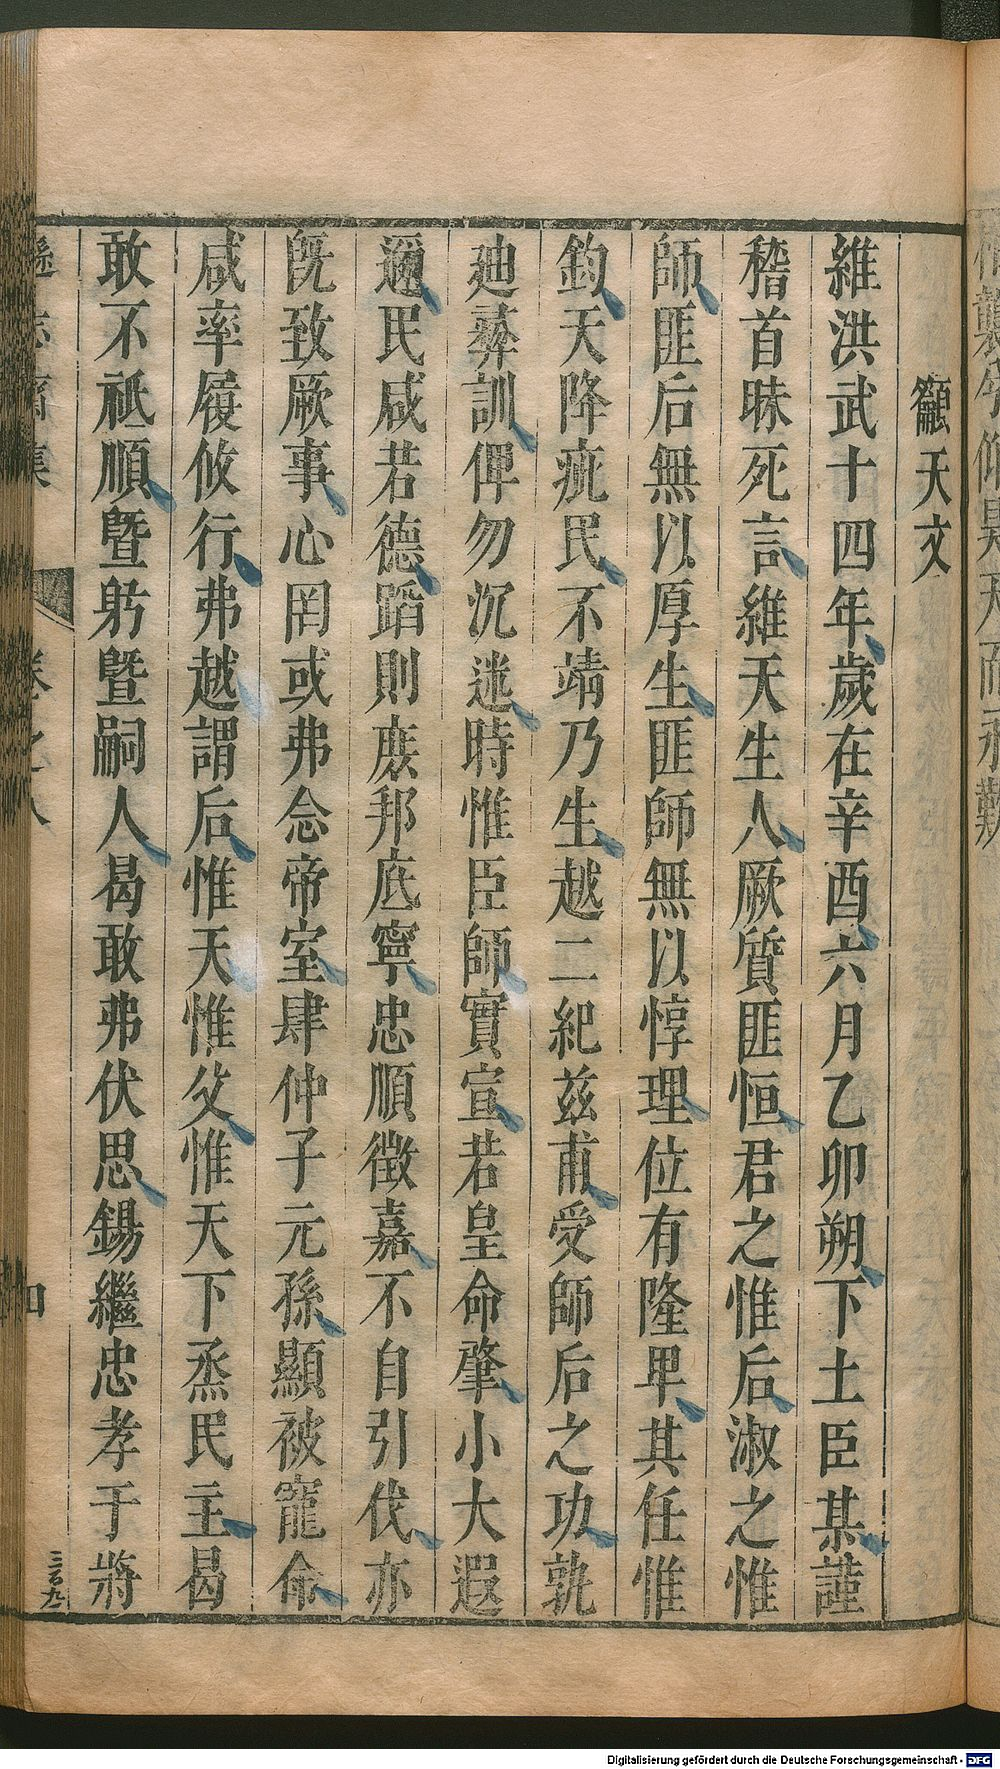 籲天文
維洪武十四年歲在辛酉六月乙卯朔下土臣某謹
稽首昧死言維天生人厥質匪恒君之惟后淑之惟
師匪后無以厚生匪師無以惇理位有隆卑其任惟
鈞天降疵民不靖乃生越二紀茲甫受師后之功孰
迪彝訓俾勿沉迷時惟臣師實宣若皇命肇小大遐
邇民咸若德蹈則庶邦底寧忠順徵嘉不自引伐亦
旣致厥事心罔或弗念帝室肆仲子元孫顯被寵命
咸率履攸行弗越謂后惟天惟父惟天下烝民主曷
敢不祗順曁躬曁嗣人曷敢弗伏思錫繼忠孝于將
遜志齋集 卷之八 四
三百九
Digitalisierung gefördert durch die Deutsche Forschungsgemeinschaft - DFG